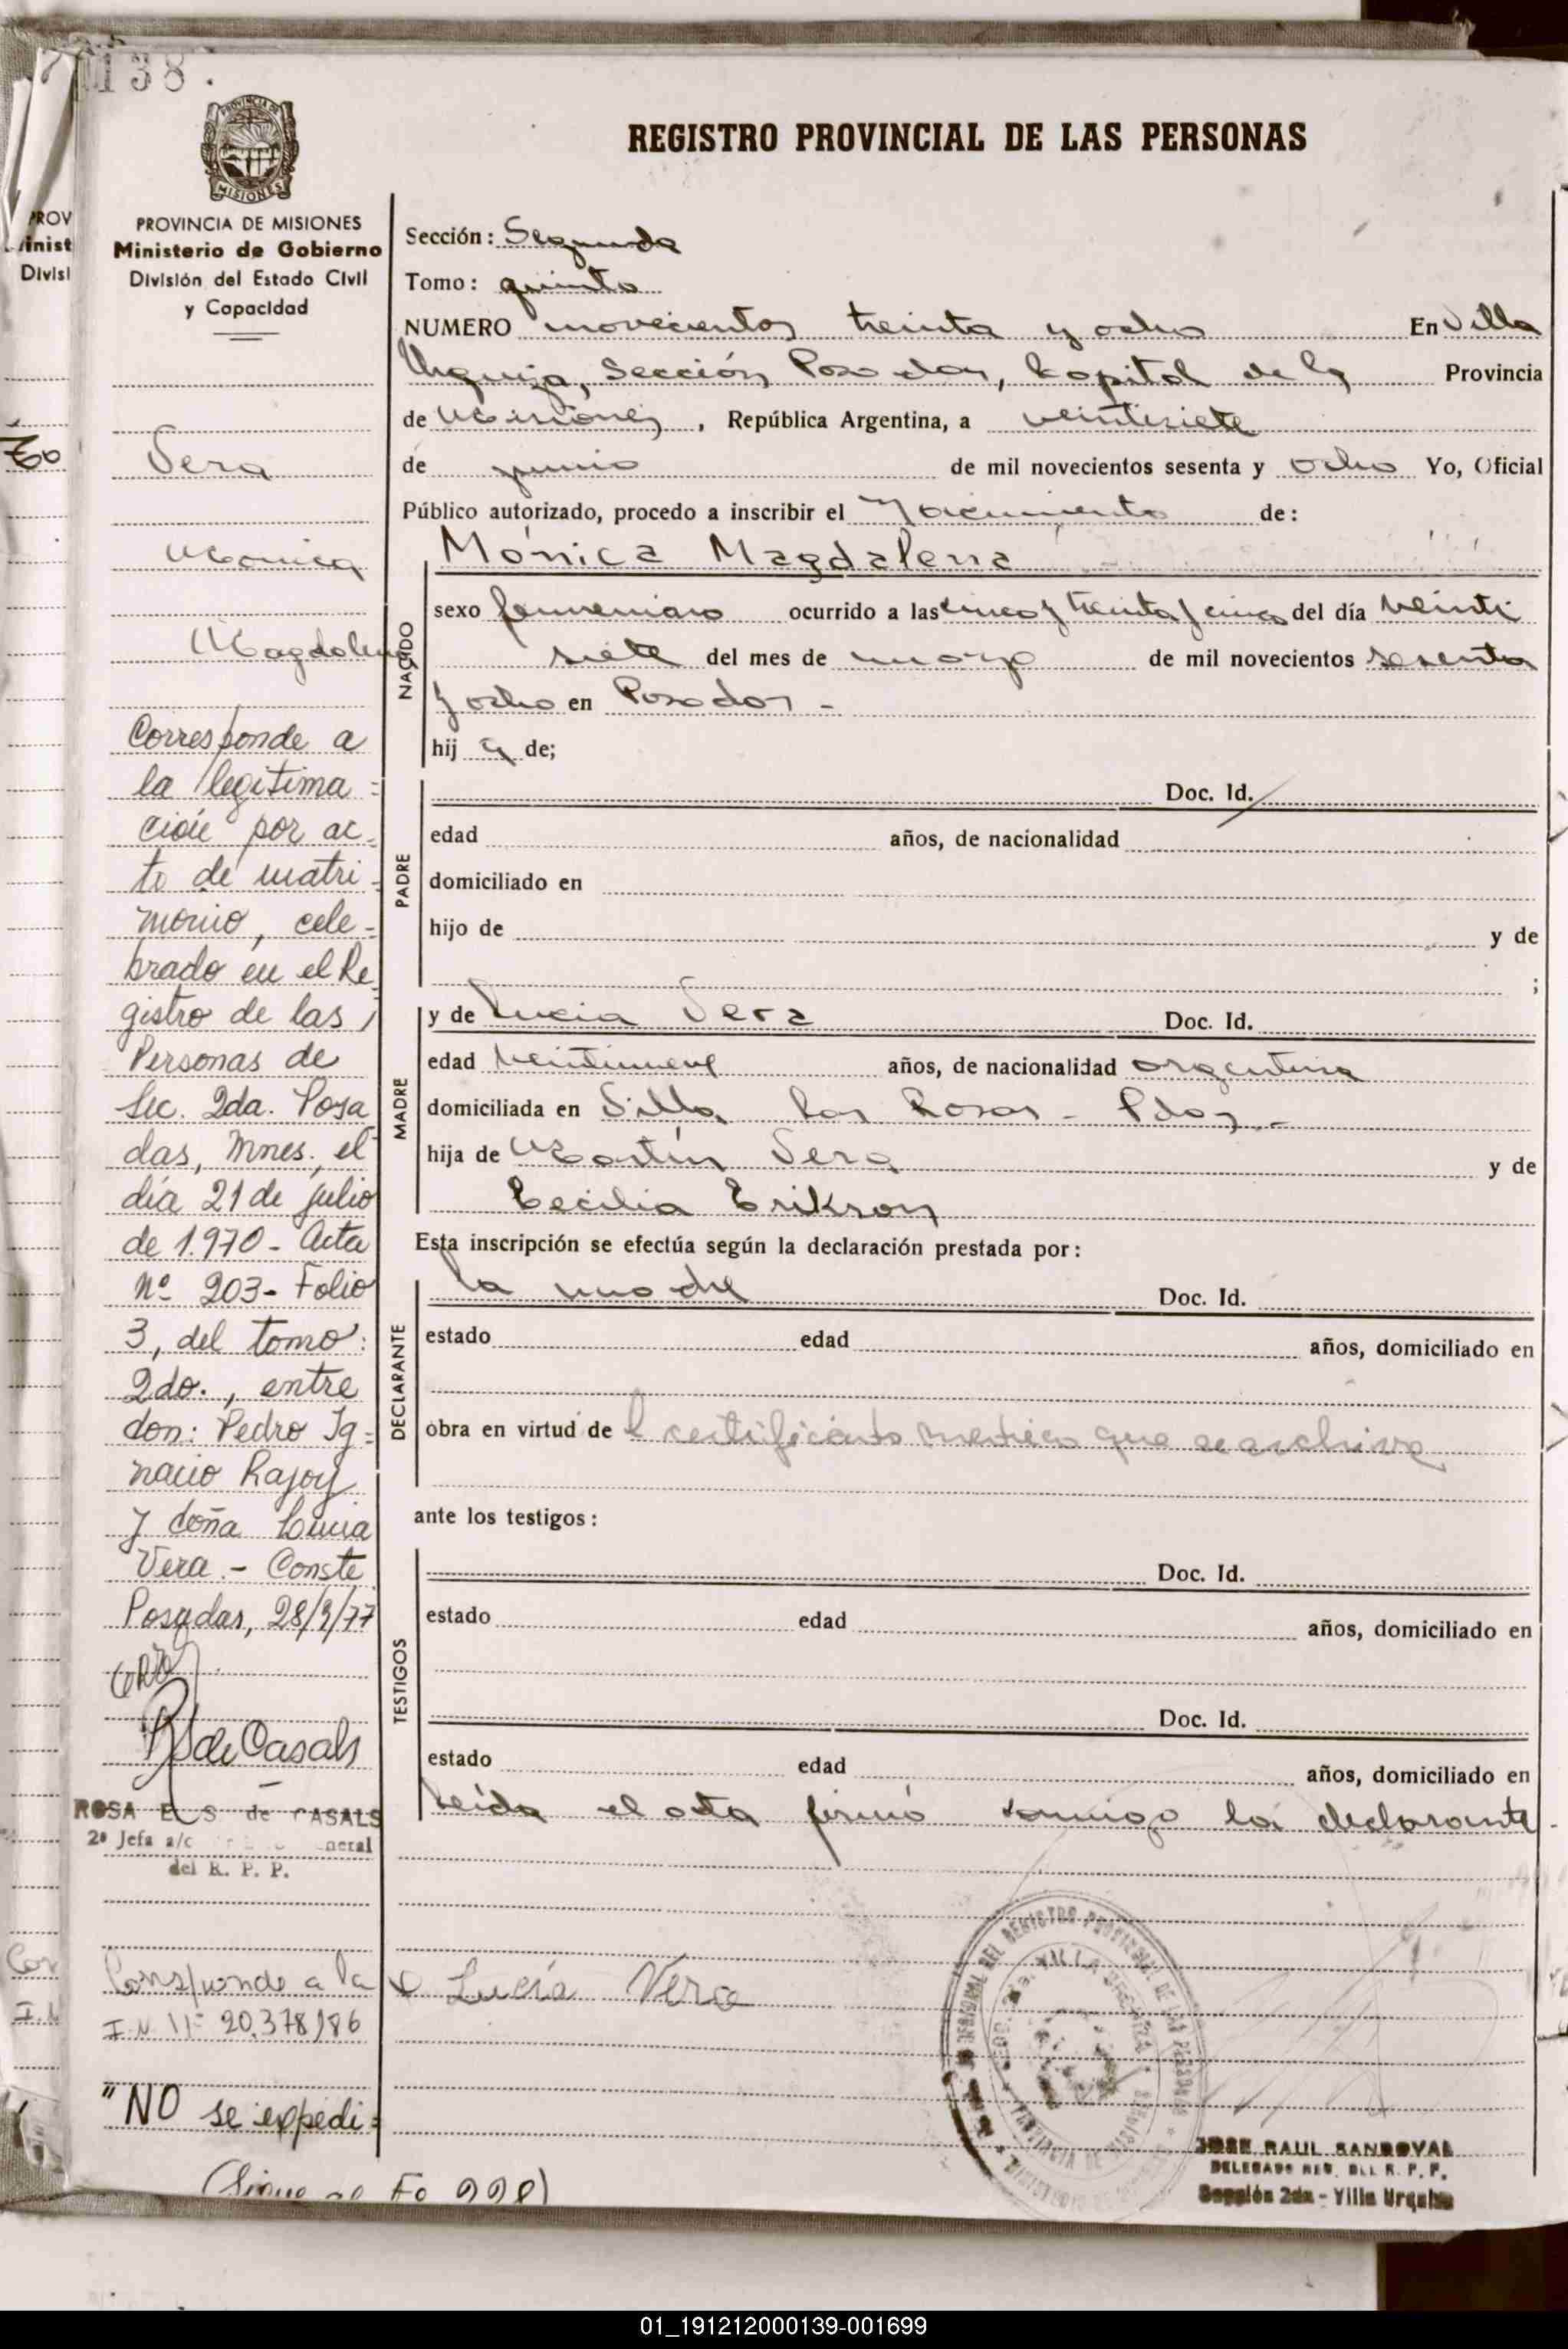 138.
REGISTRO PROVINCIAL DE LAS PERSONAS
PROVINCIA DE
MISIONES
PROVINCIA DE MISIONES
Ministerio de Gobierno
División del Estado Civil
y Capacidad
Vera
Monica
Magdalena
Corresponde a
la legitima=
ción por ac-
to de matri-
monio, cele-
brado en el Re
gistro de las
Personas de
Sec. 2da. Posa
das, Mnes., el
día 21 de julio
de 1.970 - Acta
Nº 203 - Folio
3, del tomo:
2do., entre
don: Pedro Ig=
nacio Rajoy
y doña Lucia
Vera.- Conste
Posadas, 28/9/77
RS de Casals
ROSA E. S. de CASALS
2ª Jefa a/c
del R. P. P.
Corresponde a la
I.N. Nº 20.378.186
"NO se expedi=
(Sigue al Fo 228)
Sección: Segunda
Tomo: quinto
NUMERO novecientos treinta y ocho En Villa
Urquiza, Sección Posadas, Capital de la Provincia
de Misiones, República Argentina, a veintisiete
de junio de mil novecientos sesenta y ocho Yo, Oficial
Público autorizado, procedo a inscribir el Nacimiento de:
Mónica Magdalena
NACIDO
sexo femenino ocurrido a las cinco y treinta y cinco del día veinti
siete del mes de marzo de mil novecientos sesenta
y ocho en Posadas -
hij a de;
PADRE
Doc. Id.
edad años, de nacionalidad
domiciliado en
hijo de y de
;
MADRE
y de Lucia Vera Doc. Id.
edad veintinueve años, de nacionalidad argentina
domiciliada en Villa Las Rosas - Pdas. -
hija de Martín Vera y de
Cecilia Erikson
Esta inscripción se efectúa según la declaración prestada por:
DECLARANTE
la madre Doc. Id.
estado edad años, domiciliado en
obra en virtud de l certificado medico que se archiva
ante los testigos:
TESTIGOS
Doc. Id.
estado edad años, domiciliado en
Doc. Id.
estado edad años, domiciliado en
Leída el acta firmó conmigo la declarante
Lucía Vera
JOSE RAUL SANDOVAL
DELEGADO REG. DEL R. P. P.
Sección 2da - Villa Urquiza
01_191212000139-001699